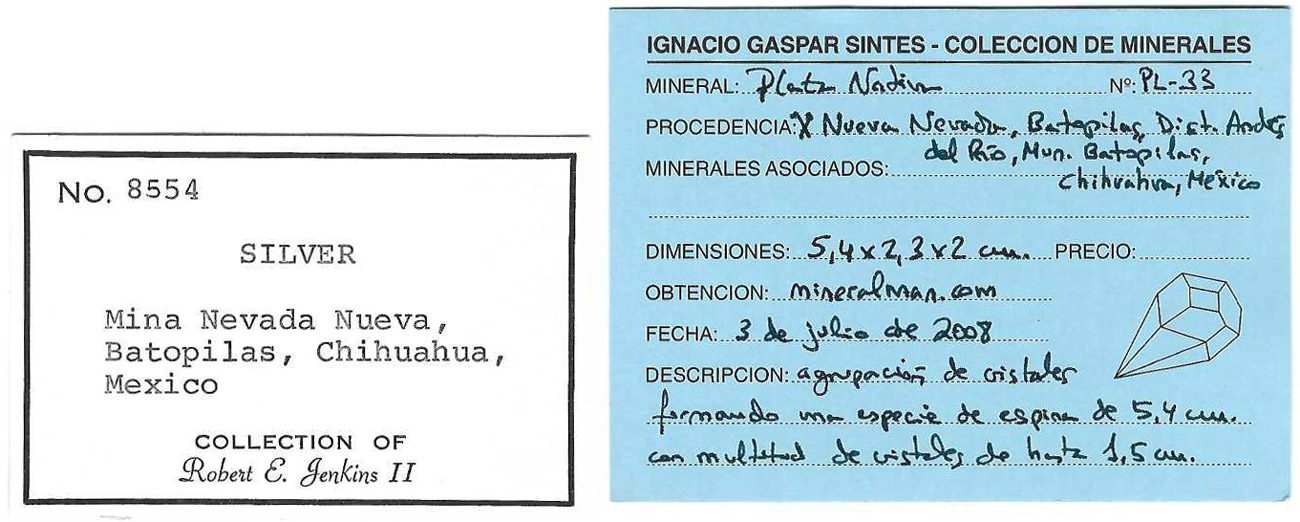 No. 8554
SILVER
Mina Nevada Nueva,
Batopilas, Chihuahua,
Mexico
COLLECTION OF
Robert E. Jenkins II
IGNACIO GASPAR SINTES - COLECCION DE MINERALES
MINERAL: Plata Nativa Nº: PL-33
PROCEDENCIA: X Nueva Nevada, Batopilas, Dist. Andrés
del Río, Mun. Batopilas,
MINERALES ASOCIADOS:
Chihuahua, México
DIMENSIONES: 5,4 x 2,3 x 2 cm. PRECIO:
OBTENCION: mineralman.com
FECHA: 3 de julio de 2008
DESCRIPCION: agrupación de cristales
formando una especie de espina de 5,4 cm.
con multitud de cristales de hasta 1,5 cm.